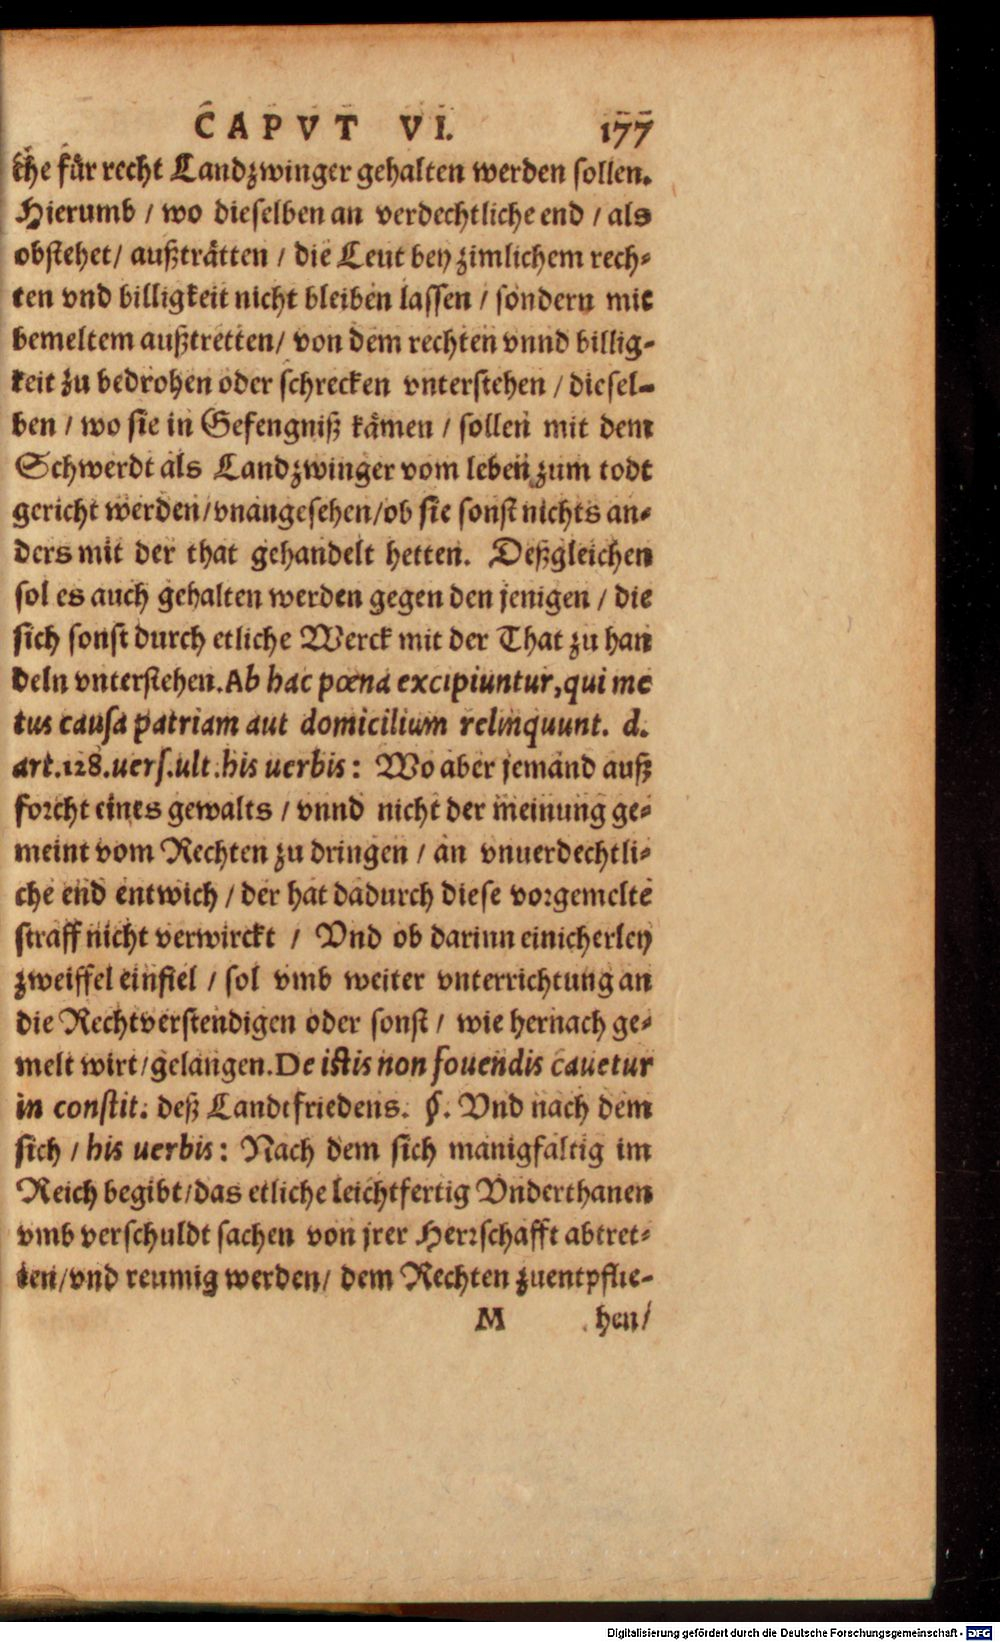 CAPVT VI. 177
che fuͤr recht Landzwinger gehalten werden sollen.
Hierumb / wo dieselben an verdechtliche end / als
obstehet / außtraͤtten / die Leut bey zimlichem rech-
ten vnd billigkeit nicht bleiben lassen / sondern mit
bemeltem außtretten / von dem rechten vnnd billig-
keit zu bedrohen oder schrecken vnterstehen / diesel-
ben / wo sie in Gefengniß kaͤmen / sollen mit dem
Schwerdt als Landzwinger vom leben zum todt
gericht werden / vnangesehen / ob sie sonst nichts an-
ders mit der that gehandelt hetten. Deßgleichen
sol es auch gehalten werden gegen den jenigen / die
sich sonst durch etliche Werck mit der That zu han
deln vnterstehen. Ab hac pœna excipiuntur, qui me
tus causa patriam aut domicilium relinquunt. d.
art. 128. uers. ult. his uerbis: Wo aber jemand auß
forcht eines gewalts / vnnd nicht der meinung ge-
meint vom Rechten zu dringen / an vnuerdechtli-
che end entwich / der hat dadurch diese vorgemelte
straff nicht verwirckt / Vnd ob darinn einicherley
zweiffel einfiel / sol vmb weiter vnterrichtung an
die Rechtverstendigen oder sonst / wie hernach ge-
melt wirt / gelangen. De istis non fouendis cauetur
in constit. deß Landtfriedens. §. Vnd nach dem
sich / his uerbis: Nach dem sich manigfaltig im
Reich begibt / das etliche leichtfertig Vnderthanen
vmb verschuldt sachen von jrer Herrschafft abtret-
ten / vnd reumig werden / dem Rechten zuentpflie-
M hen /
Digitalisierung gefördert durch die Deutsche Forschungsgemeinschaft - DFG